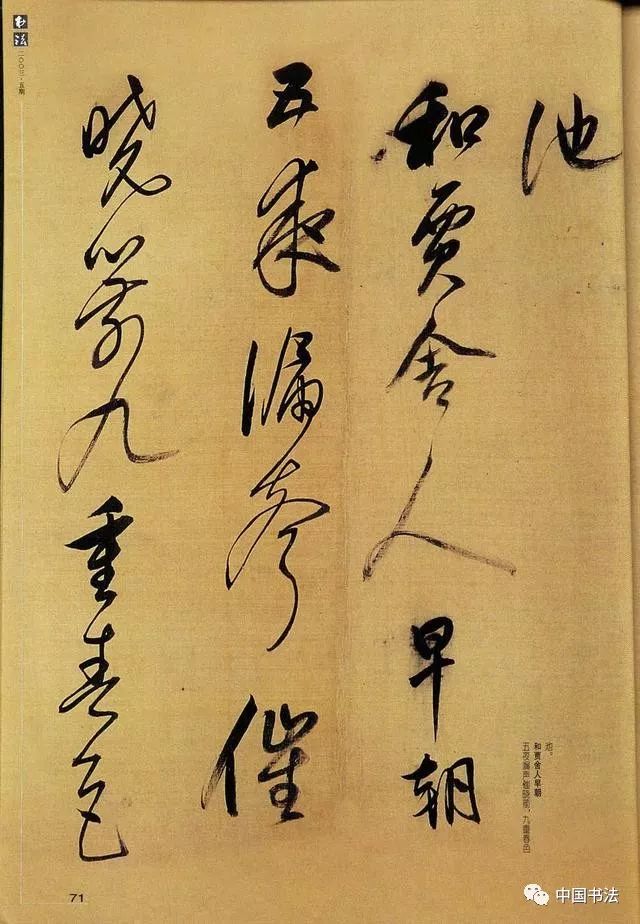 池
和賈舍人早朝
五夜漏聲催
曉箭九重春色
书法
二〇〇三·五期
池。
和贾舍人早朝
五夜漏声催晓箭，九重春色
71
中国书法